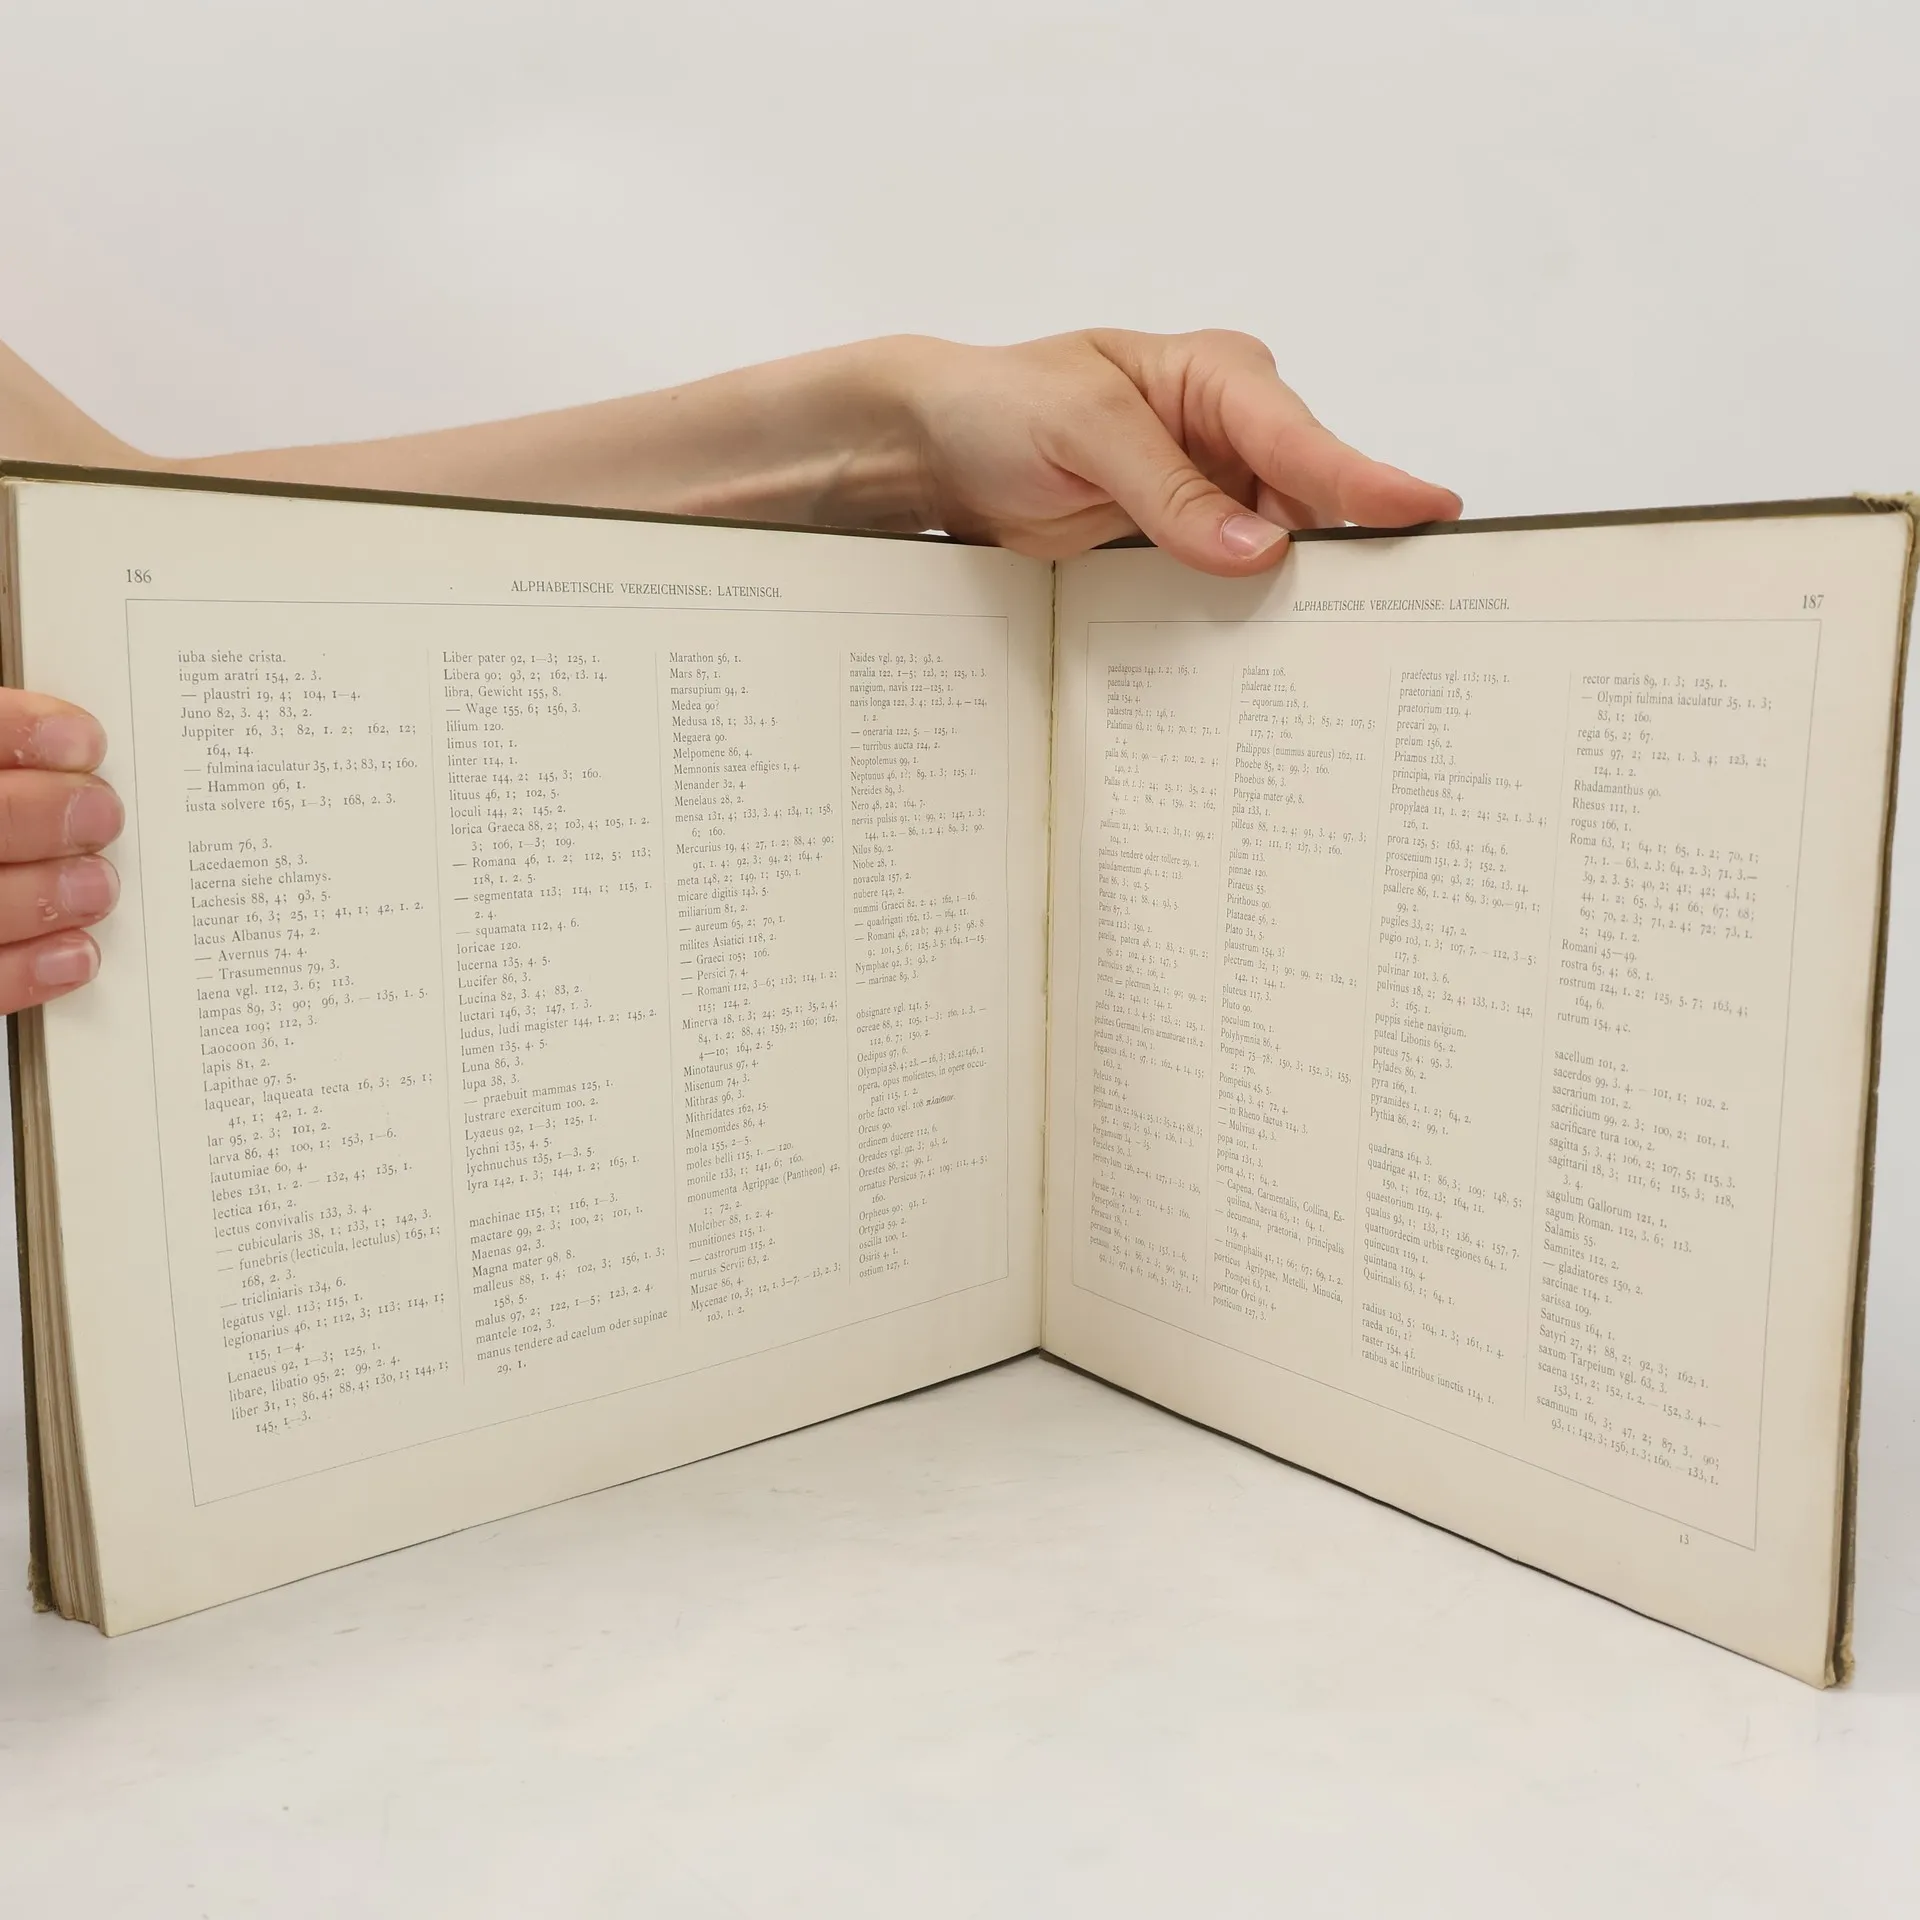 186
ALPHABETISCHE VERZEICHNISSE: LATEINISCH.
iuba siehe crista.
iugum aratri 154, 2. 3.
— plaustri 19, 4; 104, 1—4.
Juno 82, 3. 4; 83, 2.
Juppiter 16, 3; 82, 1. 2; 162, 12;
164, 14.
— fulmina iaculatur 35, 1, 3; 83, 1; 160.
— Hammon 96, 1.
iusta solvere 165, 1—3; 168, 2. 3.
labrum 76, 3.
Lacedaemon 58, 3.
lacerna siehe chlamys.
Lachesis 88, 4; 93, 5.
lacunar 16, 3; 25, 1; 41, 1; 42, 1. 2.
lacus Albanus 74, 2.
— Avernus 74, 4.
— Trasumennus 79, 3.
laena vgl. 112, 3. 6; 113.
lampas 89, 3; 90; 96, 3. — 135, 1. 5.
lancea 109; 112, 3.
Laocoon 36, 1.
lapis 81, 2.
Lapithae 97, 5.
laquear, laqueata tecta 16, 3; 25, 1;
41, 1; 42, 1. 2.
lar 95, 2. 3; 101, 2.
larva 86, 4; 100, 1; 153, 1—6.
lautumiae 60, 4.
lebes 131, 1. 2. — 132, 4; 135, 1.
lectica 161, 2.
lectus convivalis 133, 3. 4.
— cubicularis 38, 1; 133, 1; 142, 3.
— funebris (lecticula, lectulus) 165, 1;
168, 2. 3.
— tricliniaris 134, 6.
legatus vgl. 113; 115, 1.
legionarius 46, 1; 112, 3; 113; 114, 1;
115, 1—4.
Lenaeus 92, 1—3; 125, 1.
libare, libatio 95, 2; 99, 2. 4.
liber 31, 1; 86, 4; 88, 4; 130, 1; 144, 1;
145, 1—3.
Liber pater 92, 1—3; 125, 1.
Libera 90; 93, 2; 162, 13. 14.
libra, Gewicht 155, 8.
— Wage 155, 6; 156, 3.
lilium 120.
limus 101, 1.
linter 114, 1.
litterae 144, 2; 145, 3; 160.
lituus 46, 1; 102, 5.
loculi 144, 2; 145, 2.
lorica Graeca 88, 2; 103, 4; 105, 1. 2.
3; 106, 1—3; 109.
— Romana 46, 1. 2; 112, 5; 113;
118, 1. 2. 5.
— segmentata 113; 114, 1; 115, 1.
2. 4.
— squamata 112, 4. 6.
loricae 120.
lucerna 135, 4. 5.
Lucifer 86, 3.
Lucina 82, 3. 4; 83, 2.
luctari 146, 3; 147, 1. 3.
ludus, ludi magister 144, 1. 2; 145, 2.
lumen 135, 4. 5.
Luna 86, 3.
lupa 38, 3.
— praebuit mammas 125, 1.
lustrare exercitum 100, 2.
Lyaeus 92, 1—3; 125, 1.
lychni 135, 4. 5.
lychnuchus 135, 1—3. 5.
lyra 142, 1. 3; 144, 1. 2; 165, 1.
machinae 115, 1; 116, 1—3.
mactare 99, 2. 3; 100, 2; 101, 1.
Maenas 92, 3.
Magna mater 98, 8.
malleus 88, 1. 4; 102, 3; 156, 1. 3;
158, 5.
malus 97, 2; 122, 1—5; 123, 2. 4.
mantele 102, 3.
manus tendere ad caelum oder supinae
29, 1.
Marathon 56, 1.
Mars 87, 1.
marsupium 94, 2.
Medea 90?
Medusa 18, 1; 33, 4. 5.
Megaera 90.
Melpomene 86, 4.
Memnonis saxea effigies 1, 4.
Menander 32, 4.
Menelaus 28, 2.
mensa 131, 4; 133, 3. 4; 134, 1; 158,
6; 160.
Mercurius 19, 4; 27, 1. 2; 88, 4; 90;
91, 1. 4; 92, 3; 94, 2; 164, 4.
meta 148, 2; 149, 1; 150, 1.
micare digitis 143, 5.
miliarium 81, 2.
— aureum 65, 2; 70, 1.
milites Asiatici 118, 2.
— Graeci 105; 106.
— Persici 7, 4.
— Romani 112, 3—6; 113; 114, 1. 2;
115; 124, 2.
Minerva 18, 1. 3; 24; 25, 1; 35, 2. 4;
84, 1. 2; 88, 4; 159, 2; 160; 162,
4—10; 164, 2. 5.
Minotaurus 97, 4.
Misenum 74, 3.
Mithras 96, 3.
Mithridates 162, 15.
Mnemonides 86, 4.
mola 155, 2—5.
moles belli 115, 1. — 120.
monile 133, 1; 141, 6; 160.
monumenta Agrippae (Pantheon) 42,
1; 72, 2.
Mulciber 88, 1. 2. 4.
munitiones 115, 1.
— castrorum 115, 2.
murus Servii 63, 2.
Musae 86, 4.
Mycenae 10, 3; 12, 1. 3—7. — 13, 2. 3;
103, 1. 2.
Naides vgl. 92, 3; 93, 2.
navalia 122, 1—5; 123, 2; 125, 1. 3.
navigium, navis 122—125, 1.
navis longa 122, 3. 4; 123, 3. 4. — 124,
1. 2.
— oneraria 122, 5. — 125, 1.
— turribus aucta 124, 2.
Neoptolemus 99, 1.
Neptunus 46, 1?; 89, 1. 3; 125, 1.
Nereides 89, 3.
Nero 48, 2a; 164, 7.
nervis pulsis 91, 1; 99, 2; 142, 1. 3;
144, 1. 2. — 86, 1. 2. 4; 89, 3; 90.
Nilus 89, 2.
Niobe 28, 1.
novacula 157, 2.
nubere 142, 2.
nummi Graeci 82, 2. 4; 162, 1—16.
— quadrigati 162, 13. — 164, 11.
— Romani 48, 2a b; 49, 4. 5; 98, 8
9; 101, 5. 6; 125, 3. 5; 164, 1—15.
Nymphae 92, 3; 93, 2.
— marinae 89, 3.
obsignare vgl. 141, 5.
ocreae 88, 2; 105, 1—3; 160, 1. 3. —
112, 6. 7; 150, 2.
Oedipus 97, 6.
Olympia 58, 4; 23. — 16, 3; 18, 2; 146, 1
opera, opus molientes, in opere occu-
pati 115, 1. 2.
orbe facto vgl. 108 πλαίσιον.
Orcus 90.
ordinem ducere 112, 6.
Oreades vgl. 92, 3; 93, 2.
Orestes 86, 2; 99, 1.
ornatus Persicus 7, 4; 109; 111, 4. 5;
160.
Orpheus 90; 91, 1.
Ortygia 59, 2.
oscilla 100, 1.
Osiris 4, 1.
ostium 127, 1.
ALPHABETISCHE VERZEICHNISSE: LATEINISCH.
187
paedagogus 144, 1. 2; 165, 1.
paenula 140, 1.
pala 154, 4.
palaestra 76, 1; 146, 1.
Palatinus 63, 1; 64, 1; 70, 1; 71, 1.
palmas tendere oder tollere 29, 1.
paludamentum 46, 1. 2; 113.
Pan 86, 3; 92, 5.
Parcae 19, 4; 86, 4; 93, 5.
Paris 87, 3.
parma 113; 150, 2.
Patroclus 28, 2; 106, 2.
pedites Germani levis armaturae 118, 2.
pedum 28, 3; 100, 1.
Peleus 19, 4.
Persepolis 7, 1. 2.
Perseus 18, 1.
phalanx 108.
phalerae 112, 6.
— equorum 118, 1.
pharetra 7, 4; 18, 3; 85, 2; 107, 5;
117, 7; 160.
Philippus (nummus aureus) 162, 11.
Phoebe 85, 2; 99, 3; 160.
Phoebus 86, 3.
Phrygia mater 98, 8.
pila 133, 1.
pilleus 88, 1. 2. 4; 91, 3. 4; 97, 3;
99, 1; 111, 1; 137, 3; 160.
pilum 113.
pinnae 120.
Piraeus 55.
Pirithous 90.
Plataeae 56, 2.
Plato 31, 5.
plaustrum 154, 3?
plectrum 32, 1; 90; 99, 2; 132, 2;
142, 1; 144, 1.
pluteus 117, 3.
Pluto 90.
poculum 100, 1.
Polyhymnia 86, 4.
Pompei 75—78; 150, 3; 152, 3; 155,
2; 170.
Pompeius 45, 5.
pons 43, 3. 4; 72, 4.
— in Rheno factus 114, 3.
— Mulvius 43, 3.
popa 101, 1.
popina 131, 3.
porta 43, 1; 64, 2.
— Capena, Carmentalis, Collina, Es-
quilina, Naevia 63, 1; 64, 1.
— decumana, praetoria, principalis
119, 4.
— triumphalis 41, 1; 66; 67; 69, 1. 2.
porticus Agrippae, Metelli, Minucia,
Pompei 63, 1.
portitor Orci 91, 4.
posticum 127, 3.
praefectus vgl. 113; 115, 1.
praetoriani 118, 5.
praetorium 119, 4.
precari 29, 1.
prelum 156, 2.
Priamus 133, 3.
principia, via principalis 119, 4.
Prometheus 88, 4.
propylaea 11, 1. 2; 24; 52, 1. 3. 4;
126, 1.
prora 125, 5; 163, 4; 164, 6.
proscenium 151, 2. 3; 152, 2.
Proserpina 90; 93, 2; 162, 13. 14.
psallere 86, 1. 2. 4; 89, 3; 90.—91, 1;
99, 2.
pugiles 33, 2; 147, 2.
pugio 103, 1. 3; 107, 7. — 112, 3—5;
117, 5.
pulvinar 101, 3. 6.
pulvinus 18, 2; 32, 4; 133, 1. 3; 142,
3; 165, 1.
puppis siehe navigium.
puteal Libonis 65, 2.
puteus 75, 4; 95, 3.
Pylades 86, 2.
pyra 166, 1.
pyramides 1, 1. 2; 64, 2.
Pythia 86, 2; 99, 1.
quadrans 164, 3.
quadrigae 41, 1; 86, 3; 109; 148, 5;
150, 1; 162, 13; 164, 11.
quaestorium 119, 4.
qualus 93, 1; 133, 1; 136, 4; 157, 7.
quattuordecim urbis regiones 64, 1.
quincunx 119, 1.
quintana 119, 4.
Quirinalis 63, 1; 64, 1.
radius 103, 5; 104, 1. 3; 161, 1. 4.
raeda 161, 1?
raster 154, 4f.
ratibus ac lintribus iunctis 114, 1.
rector maris 89, 1. 3; 125, 1.
— Olympi fulmina iaculatur 35, 1. 3;
83, 1; 160.
regia 65, 2; 67.
remus 97, 2; 122, 1. 3. 4; 123, 2;
124, 1. 2.
Rhadamanthus 90.
Rhesus 111, 1.
rogus 166, 1.
Roma 63, 1; 64, 1; 65, 1. 2; 70, 1;
71, 1. — 63, 2. 3; 64, 2. 3; 71, 3.—
39, 2. 3. 5; 40, 2; 41; 42; 43, 1;
44, 1. 2; 65, 3. 4; 66; 67; 68;
69; 70, 2. 3; 71, 2. 4; 72; 73, 1.
2; 149, 1. 2.
Romani 45—49.
rostra 65, 4; 68, 1.
rostrum 124, 1. 2; 125, 5. 7; 163, 4;
164, 6.
rutrum 154, 4c.
sacellum 101, 2.
sacerdos 99, 3. 4. — 101, 1; 102, 2.
sacrarium 101, 2.
sacrificium 99, 2. 3; 100, 2; 101, 1.
sacrificare tura 100, 2.
sagitta 5, 3. 4; 106, 2; 107, 5; 115, 3.
sagittarii 18, 3; 111, 6; 115, 3; 118,
3. 4.
sagulum Gallorum 121, 1.
sagum Roman. 112, 3. 6; 113.
Salamis 55.
Samnites 112, 2.
— gladiatores 150, 2.
sarcinae 114, 1.
sarissa 109.
Saturnus 164, 1.
Satyri 27, 4; 88, 2; 92, 3; 162, 1.
saxum Tarpeium vgl. 63, 3.
scaena 151, 2; 152, 1. 2. — 152, 3. 4. —
153, 1. 2.
scamnum 16, 3; 47, 2; 87, 3. 90;
93, 1; 142, 3; 156, 1. 3; 160. — 133, 1.
13